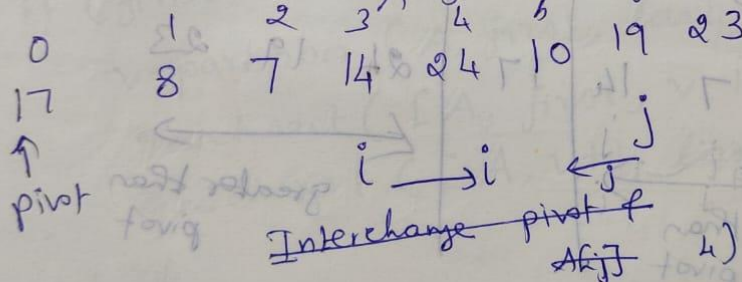 0 1 2 3 4 5
17 8 7 14 24 10 19 23
↑ i → i ← j j
pivot
Interchange pivot &
A[j] 4)